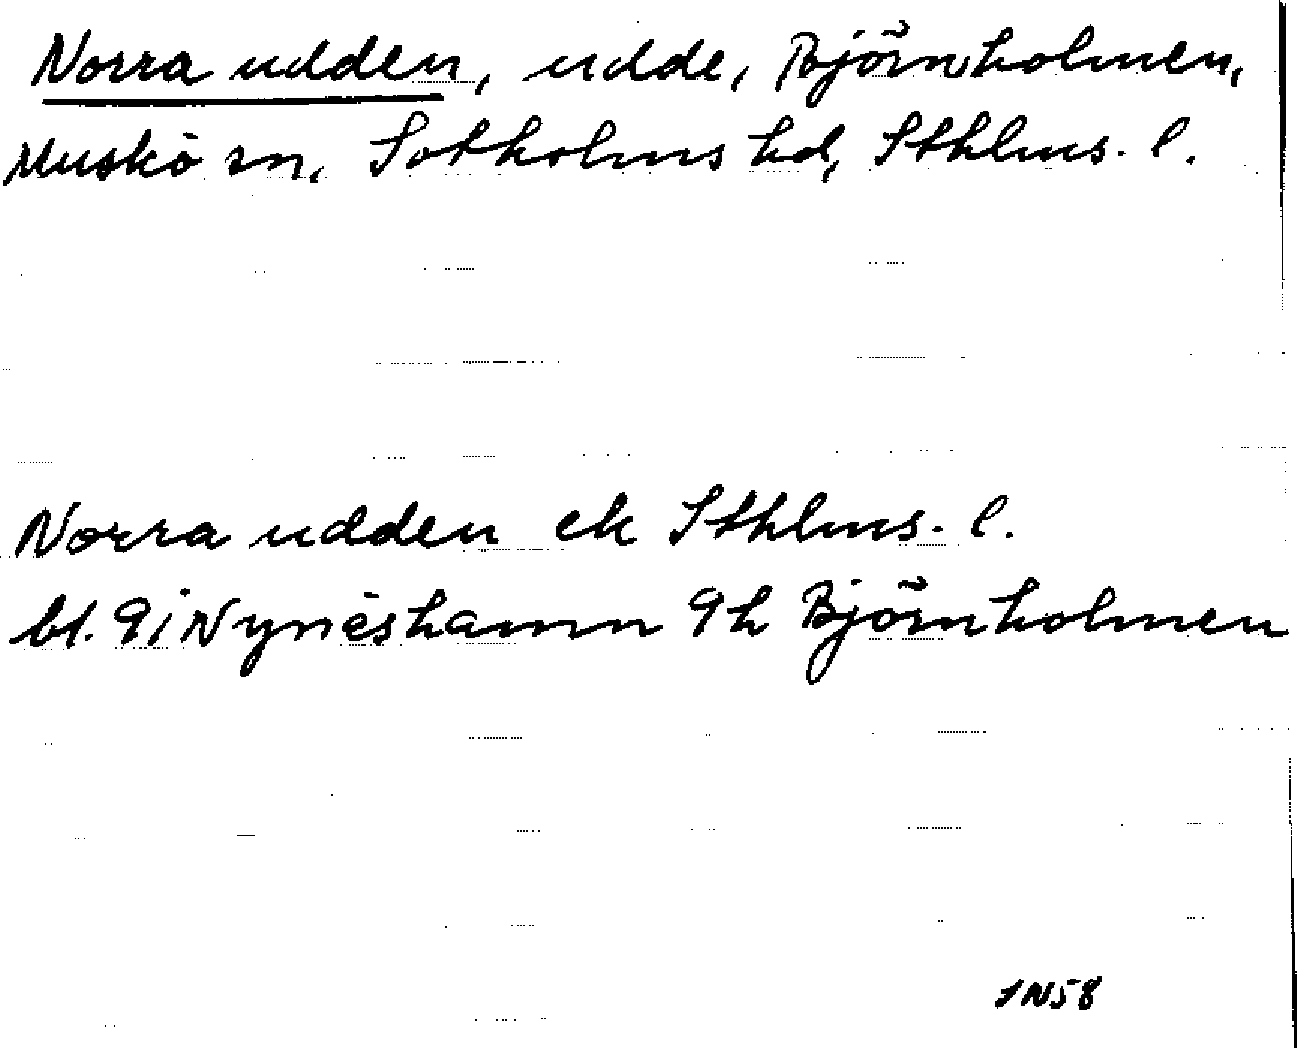 Norra udden, udde, Björnholmen,
Muskö sn, Sotholms hd, Sthlms. l.
Norra udden ek Sthlms. l.
bl. 9i Nynäshamn 9h Björnholmen
IN58